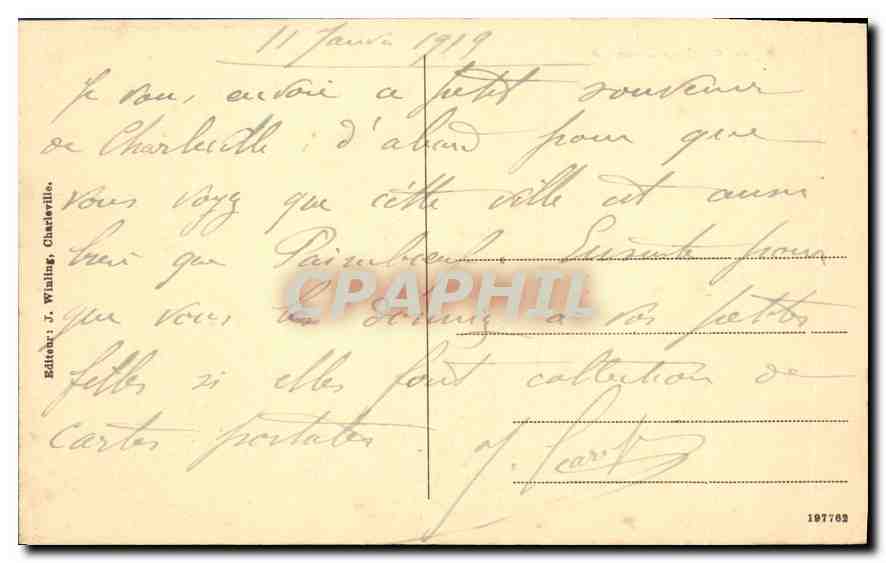 11 Janvier 1919
Je vous envoie ce petit souvenir
de Charleville : d'abord pour que
vous voyez que cette ville est aussi
bien que Paimboeuf. Ensuite pour
que vous les donniez à vos petites
filles si elles font collection de
cartes postales.
J.
Editeur: J. Winling, Charleville.
CPAPHIL
197762